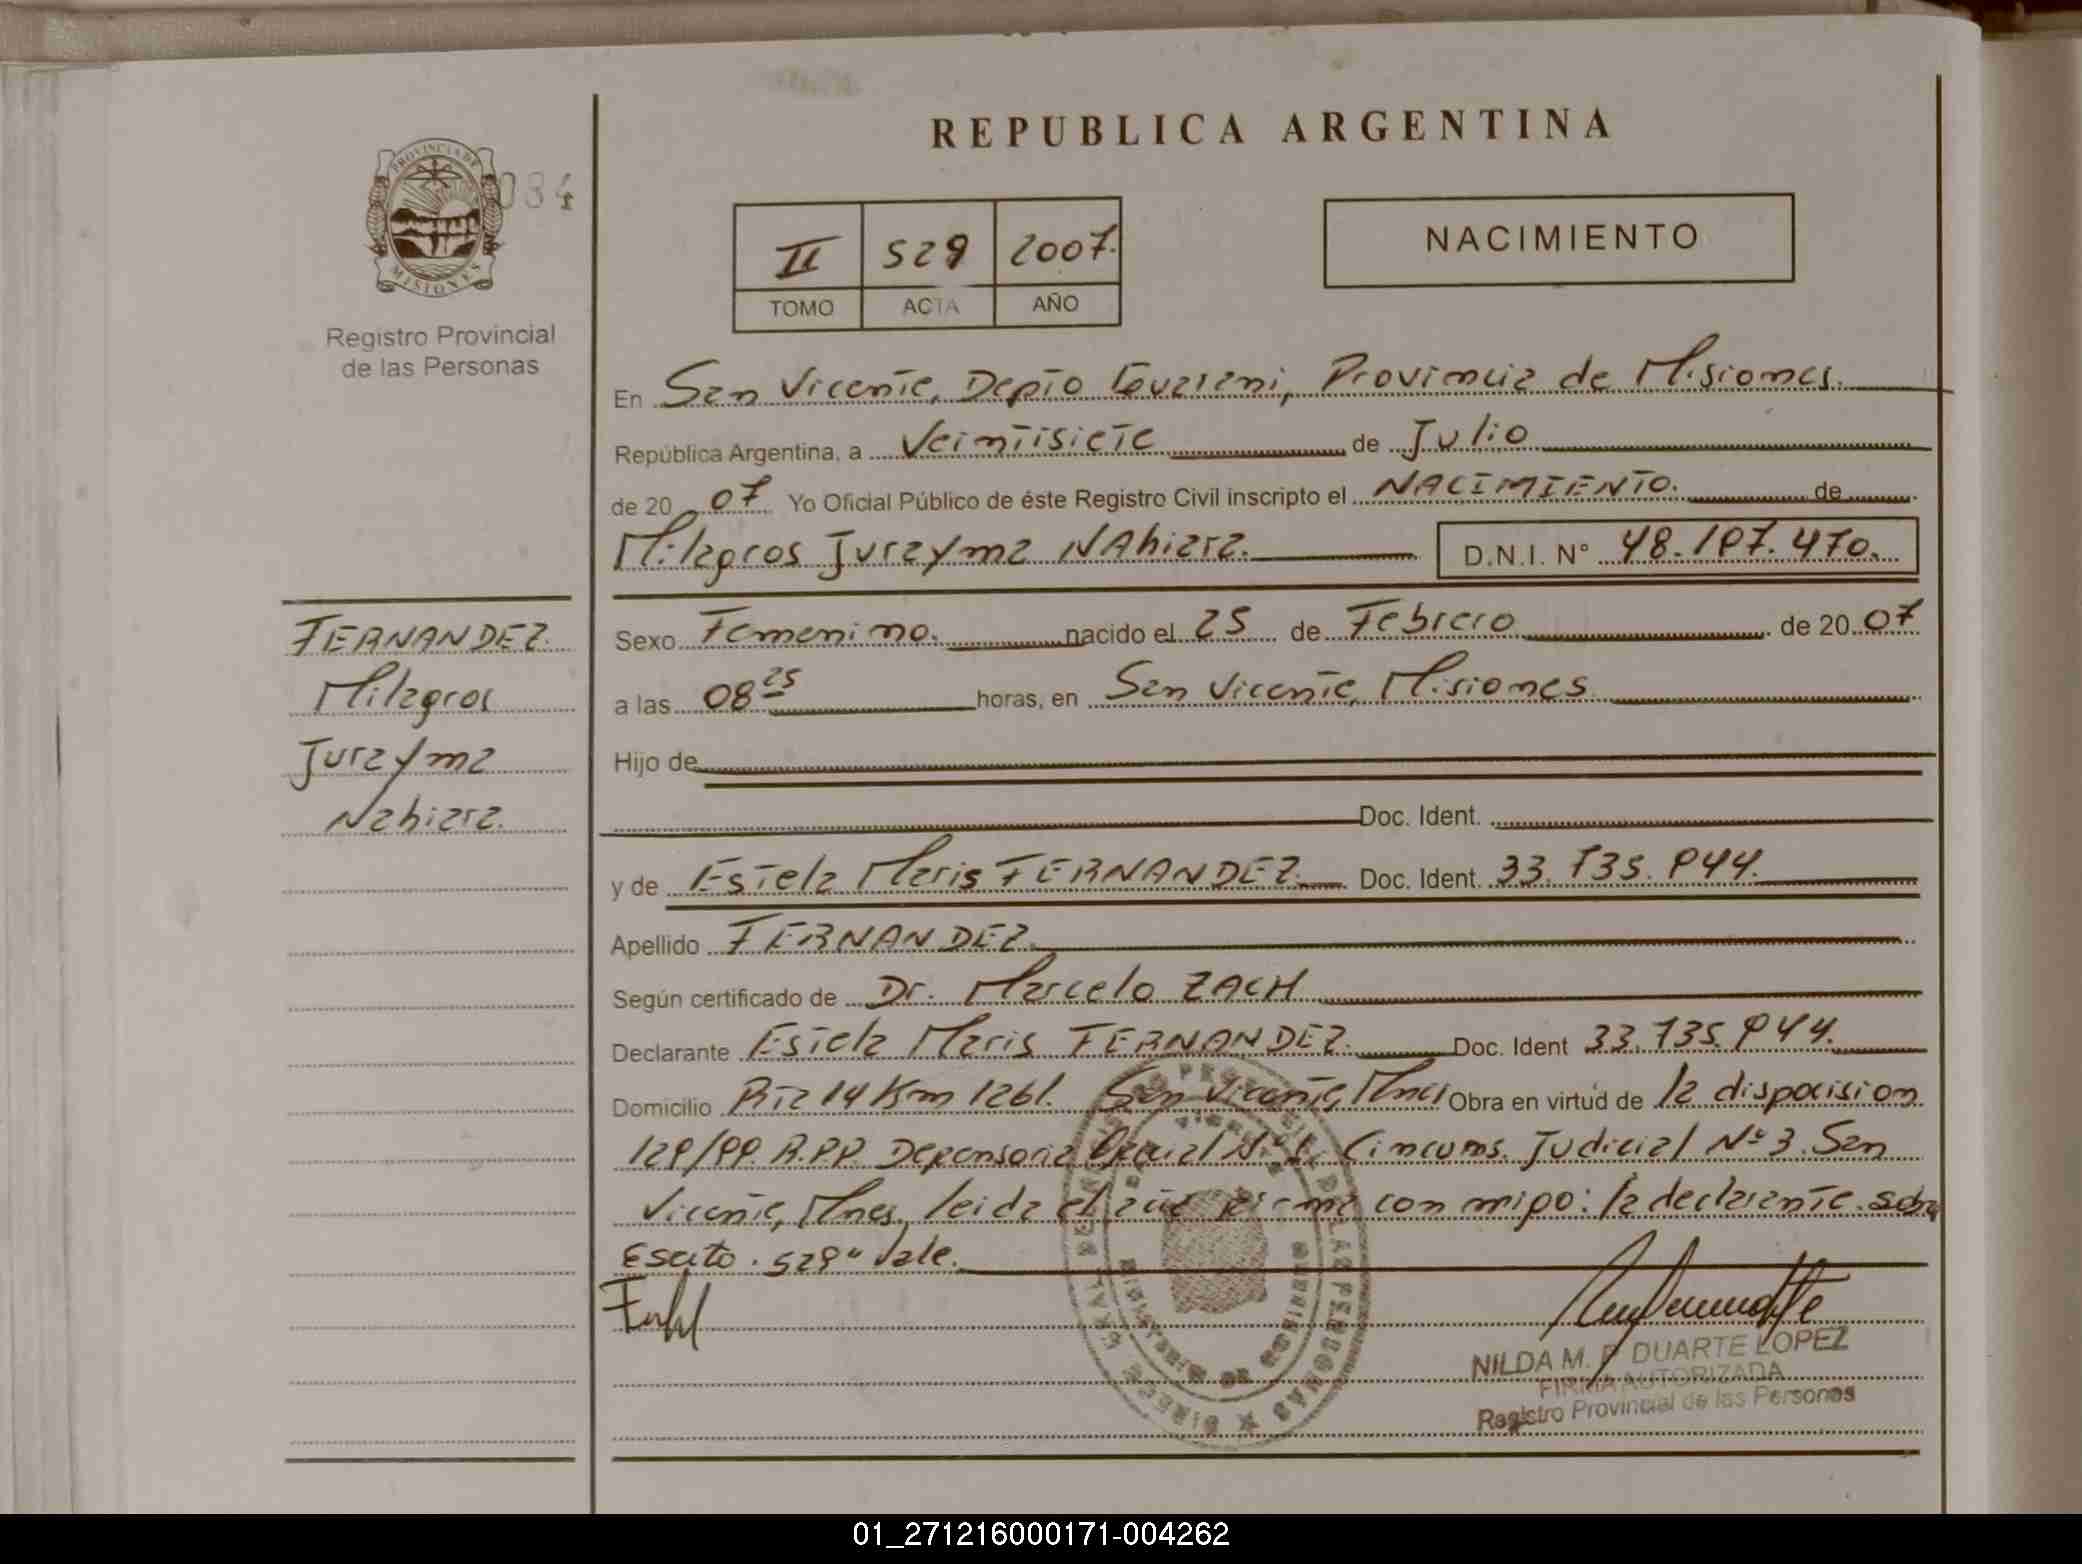 REPUBLICA ARGENTINA
PROVINCIA DE
MISIONES
034
Registro Provincial
de las Personas
II 529 2007.
TOMO ACTA AÑO
NACIMIENTO
En San Vicente, Depto Guarani, Provincia de Misiones.
República Argentina, a Veintisiete de Julio
de 20 07 Yo Oficial Público de éste Registro Civil inscripto el NACIMIENTO. de
Milagros Jurayma NAhiara. D.N.I. N°
FERNANDEZ.
Milagros
Jurayma
Nahiara.
Sexo Femenino. nacido el 25 de Febrero de 20 07
a las 08 25 horas, en San Vicente, Misiones
Hijo de
Doc. Ident.
y de Estela Maris FERNANDEZ. Doc. Ident.
Apellido FERNANDEZ.
Según certificado de Dr. Marcelo ZACH
Declarante Estela Maris FERNANDEZ. Doc. Ident
Domicilio Rta 14 Km 1261. San Vicente, Mnes Obra en virtud de la disposision
R.P.P. Defensoria Oficial Circums. Judicial Nº 3. San
Vicente, Mnes, leida el firma con migo: la declarante. sobre
Escrito. 529" Vale.
NILDA M. P. DUARTE LOPEZ
FIRMA AUTORIZADA
Registro Provincial de las Personas
01_271216000171-004262